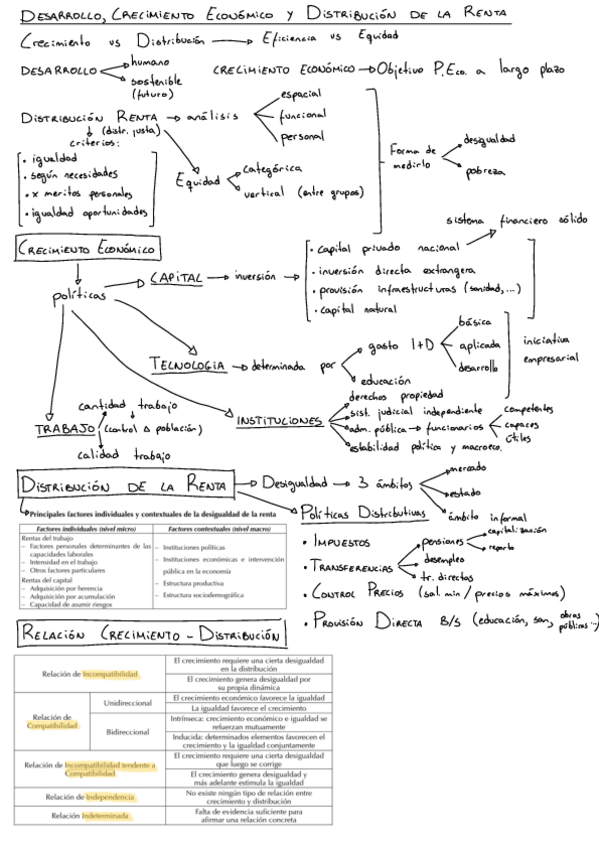 DESARROLLO, CRECIMIENTO ECONÓMICO Y DISTRIBUCIÓN DE LA RENTA
Crecimiento vs Distribución → Eficiencia vs Equidad
DESARROLLO
humano
sostenible
(futuro)
CRECIMIENTO ECONÓMICO → Objetivo P.Eco. a largo plazo
DISTRIBUCIÓN RENTA → análisis
espacial
funcional
personal
↓ (distr. justa)
criterios:
• igualdad
• según necesidades
• x meritos personales
• igualdad oportunidades
Equidad
categórica
vertical (entre grupos)
Forma de
medirlo
desigualdad
pobreza
CRECIMIENTO ECONÓMICO
políticas
CAPITAL → inversión →
sistema financiero sólido
• capital privado nacional
• inversión directa extrangera
• provisión infraestructuras (sanidad,...)
• capital natural
TECNOLOGIA → determinada por
gasto I+D
básica
aplicada
desarrollo
educación
iniciativa
empresarial
INSTITUCIONES
derechos propiedad
sist. judicial independiente
adm. pública → funcionarios
competentes
capaces
útiles
estabilidad política y macroeco.
TRABAJO
cantidad trabajo
(control Δ población)
calidad trabajo
DISTRIBUCIÓN DE LA RENTA → Desigualdad → 3 ámbitos
mercado
estado
ámbito informal
Principales factores individuales y contextuales de la desigualdad de la renta
Factores individuales (nivel micro) Factores contextuales (nivel macro)
Rentas del trabajo
– Factores personales determinantes de las capacidades laborales
– Intensidad en el trabajo
– Otros factores particulares
Rentas del capital
– Adquisición por herencia
– Adquisición por acumulación
– Capacidad de asumir riesgos
– Instituciones políticas
– Instituciones económicas e intervención pública en la economía
– Estructura productiva
– Estructura sociodemográfica
Políticas Distributivas
• IMPUESTOS
• TRANSFERENCIAS
pensiones
capitalización
reparto
desempleo
tr. directas
• CONTROL PRECIOS (sal. min / precios máximos)
• PROVISIÓN DIRECTA B/S (educación, san, obras públicas...)
RELACIÓN CRECIMIENTO - DISTRIBUCIÓN
Relación de Incompatibilidad
El crecimiento requiere una cierta desigualdad
en la distribución
El crecimiento genera desigualdad por
su propia dinámica
Relación de
Compatibilidad
Unidireccional
El crecimiento económico favorece la igualdad
La igualdad favorece el crecimiento
Bidireccional
Intrínseca: crecimiento económico e igualdad se
refuerzan mutuamente
Inducida: determinados elementos favorecen el
crecimiento y la igualdad conjuntamente
Relación de Incompatibilidad tendente a
Compatibilidad
El crecimiento requiere una cierta desigualdad
que luego se corrige
El crecimiento genera desigualdad y
más adelante estimula la igualdad
Relación de Independencia
No existe ningún tipo de relación entre
crecimiento y distribución
Relación Indeterminada
Falta de evidencia suficiente para
afirmar una relación concreta